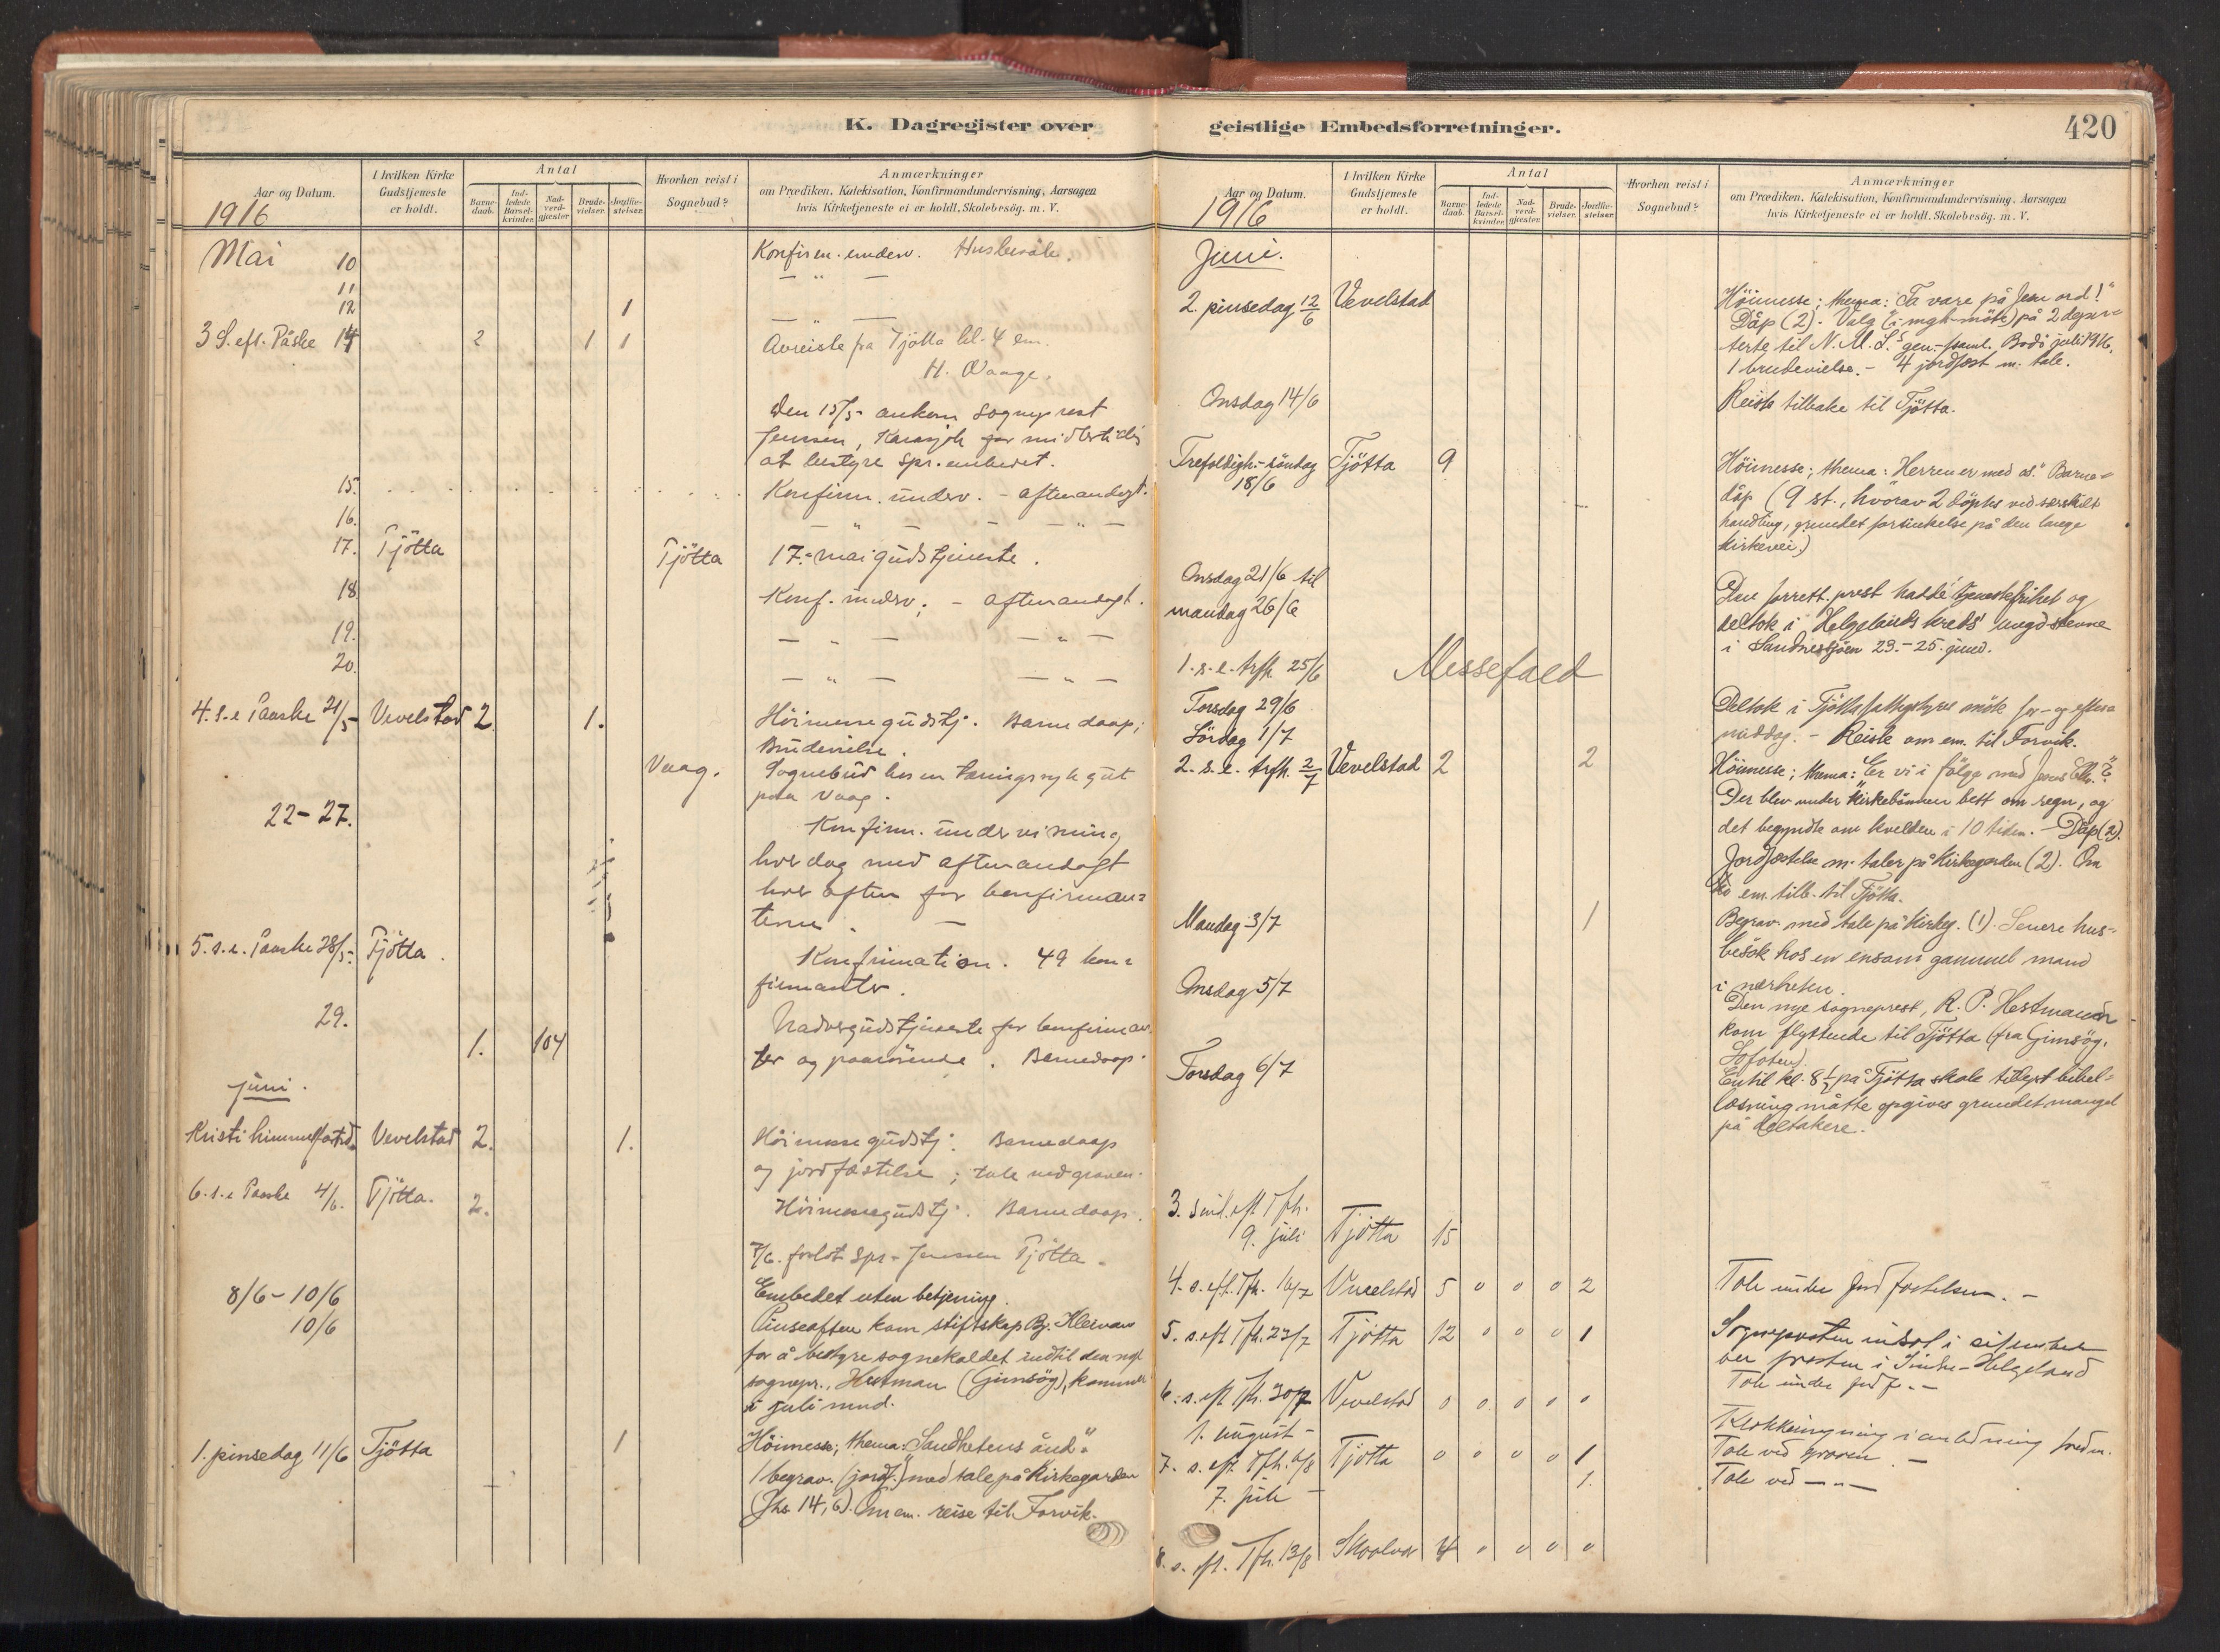 K. Dagregister over
Aar og Datum.
I hvilken Kirke Gudstjeneste er holdt.
Antal
Barne-daab.
Ind-ledede Barsel-kvinder.
Nad-verd-gjester.
Brude-vielser.
Jordfæ-stelser.
Hvorhen reist i Sognebud?
Anmærkninger
om Prædiken, Katekisation, Konfirmandundervisning, Aarsagen
hvis Kirketjeneste ei er holdt, Skolebesøg. m. V.
1916
Mai 10 Konfirm. underv. Husbesøk.
11 — " —
12 1 — " —
3 S. eft. Påske 14 2 1 1 Avreiste fra Tjøtta kl. 4 em.
H. Waage.
Den 15/5 ankom Sogneprest
Jenssen, Karasjok for midlertidig
at bestyre spr. embedet.
15. Konfirm. underv. - aftenandagt.
16. — " — — " —
17. Tjötta Tjötta 17. mai gudstjeneste.
18 Konf. underv. - aftenandagt.
19. — " — — " —
20. — " — — " —
4. s. e Paaske 21/5 Vevelstad 2 1. Höimessegudstj. Barnedaap;
Brudevielse.
Vaag. Sognebud hos en tæringssyk gut
paa Vaag.
22-27. Konfirm. undervisning
hver dag med aftenandagt
hver aften for konfirman=
terne. —
5. s. e. Paaske 28/5. Tjötta. Konfirmation. 49 kon=
firmanter.
29. 1. 104 Nadvergudstjeneste for konfirman
ter og paarörende. Barnedaap.
juni.
Kristi himmelfartsd. Vevelstad 2. 1. Höimessegudstj. Barnedaap
og jordfæstelse; tale ved graven.
6. s. e Paaske 4/6. Tjötta. 2. Höimessegudstj. Barnedaap.
7/6. forlot spr. Jenssen Tjötta.
8/6 - 10/6 Embedet uten betjening.
10/6 Pinseaften kom stiftskap. Bj.
for å bestyre sognekaldet indtil den nye
sognepr., Hestman (Gimsöy), kommer
i juli mnd.
1. pinsedag 11/6 Tjötta 1 Höimesse; thema: "Sandhetens ånd".
1 begrav. (jordf.) med tale på kirkegarden
(Jhs. 14, 6). Om em. reise til Forvik.
geistlige Embedsforretninger.
420
Aar og Datum.
I hvilken Kirke Gudstjeneste er holdt.
Antal
Barne-daab.
Ind-ledede Barsel-kvinder.
Nad-verd-gjester.
Brude-vielser.
Jordfæ-stelser.
Hvorhen reist i Sognebud?
Anmærkninger
om Prædiken, Katekisation, Konfirmandundervisning, Aarsagen
hvis Kirketjeneste ei er holdt, Skolebesøg. m. V.
1916
Juni.
2. pinsedag 12/6 Vevelstad Höimesse; thema: "Ta vare på Jesu ord!"
Dåp (2). Valg (i mgh.-möte) på 2 depu=
terte til N. M. S.' gen.-forsaml. Bodö juli 1916.
1 brudevielse. - 4 jordfæst m. tale.
Onsdag 14/6 Reiste tilbake til Tjötta.
Trefoldigh.-söndag 18/6 Tjötta 9 Höimesse; thema: "Herren er med os." Barne=
dåp (9 st., hvorav 2 döptes ved særskilt
handling, grundet forsinkelse på den lange
kirkevei.)
Onsdag 21/6 til
mandag 26/6 Den forrett. prest hadde tjenestefrihet og
deltok i Helgelands kreds' ungd.stevne
i Sandnessjöen 23.-25. juni.
1. s. e. trfh. 25/6 Messefald
Torsdag 29/6 Deltok i Tjötta fattigstyres möte for- og efter=
middag. -
Lördag 1/7 Reiste om em. til Forvik.
2. s. e. trfh. 2/7 Vevelstad 2 2 Höimesse; thema: "Er vi i fölge med Jesus
Der blev under kirkebönnen bett om regn, og
det begyndte om kvelden i 10 tiden. - Dåp (2).
Jordfæstelse m. taler på Kirkegarden (2). Om
em. tilb. til Tjötta.
Mandag 3/7 1 Begrav. med tale på Kirkeg. (1). Senere hus=
besök hos en ensom gammel mand
i nærheten.
Onsdag 5/7 Den nye sogneprest, R. P. Hestmann
kom flyttende til Tjötta (fra Gimsöy,
Lofoten).
Torsdag 6/7 En til kl. 8 1/2 på Tjötta skole bibel=
læsning måtte opgives grundet mangel
på deltakere.
3. sönd. eft Tfh.
9. juli Tjötta 15
4. s. eft. Tfh. 16/7 Vevelstad 5 0 0 0 2 Tale under Jordfæstelsen. -
5. s. eft Tfh. 23/7 Tjötta 12 0 0 0 1 Sognepresten indsat i sit embede
av prosten i Søndre-Helgeland
Tale under jordf. -
6. s. eft Tfh. 30/7 Vevelstad 0 0 0 0 0
1. august - Klokkeringning i anledning freden.
7. s. eft. Tfh. 6/8 Tjötta 0 0 0 0 1 Tale ved graven. -
7. juli - 1. Tale ved — " —
8. s. eft. Tfh. 13/8 4 0 0 0 0